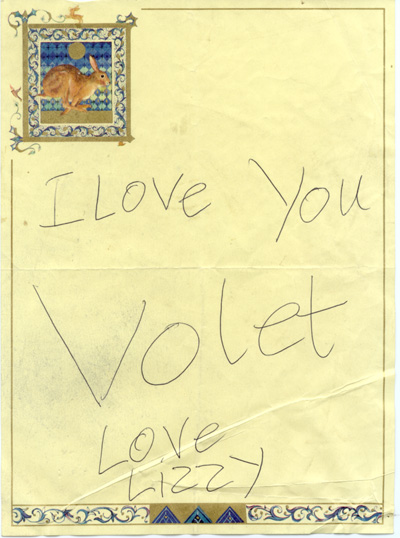 I Love You
Volet
Love
Lizzy